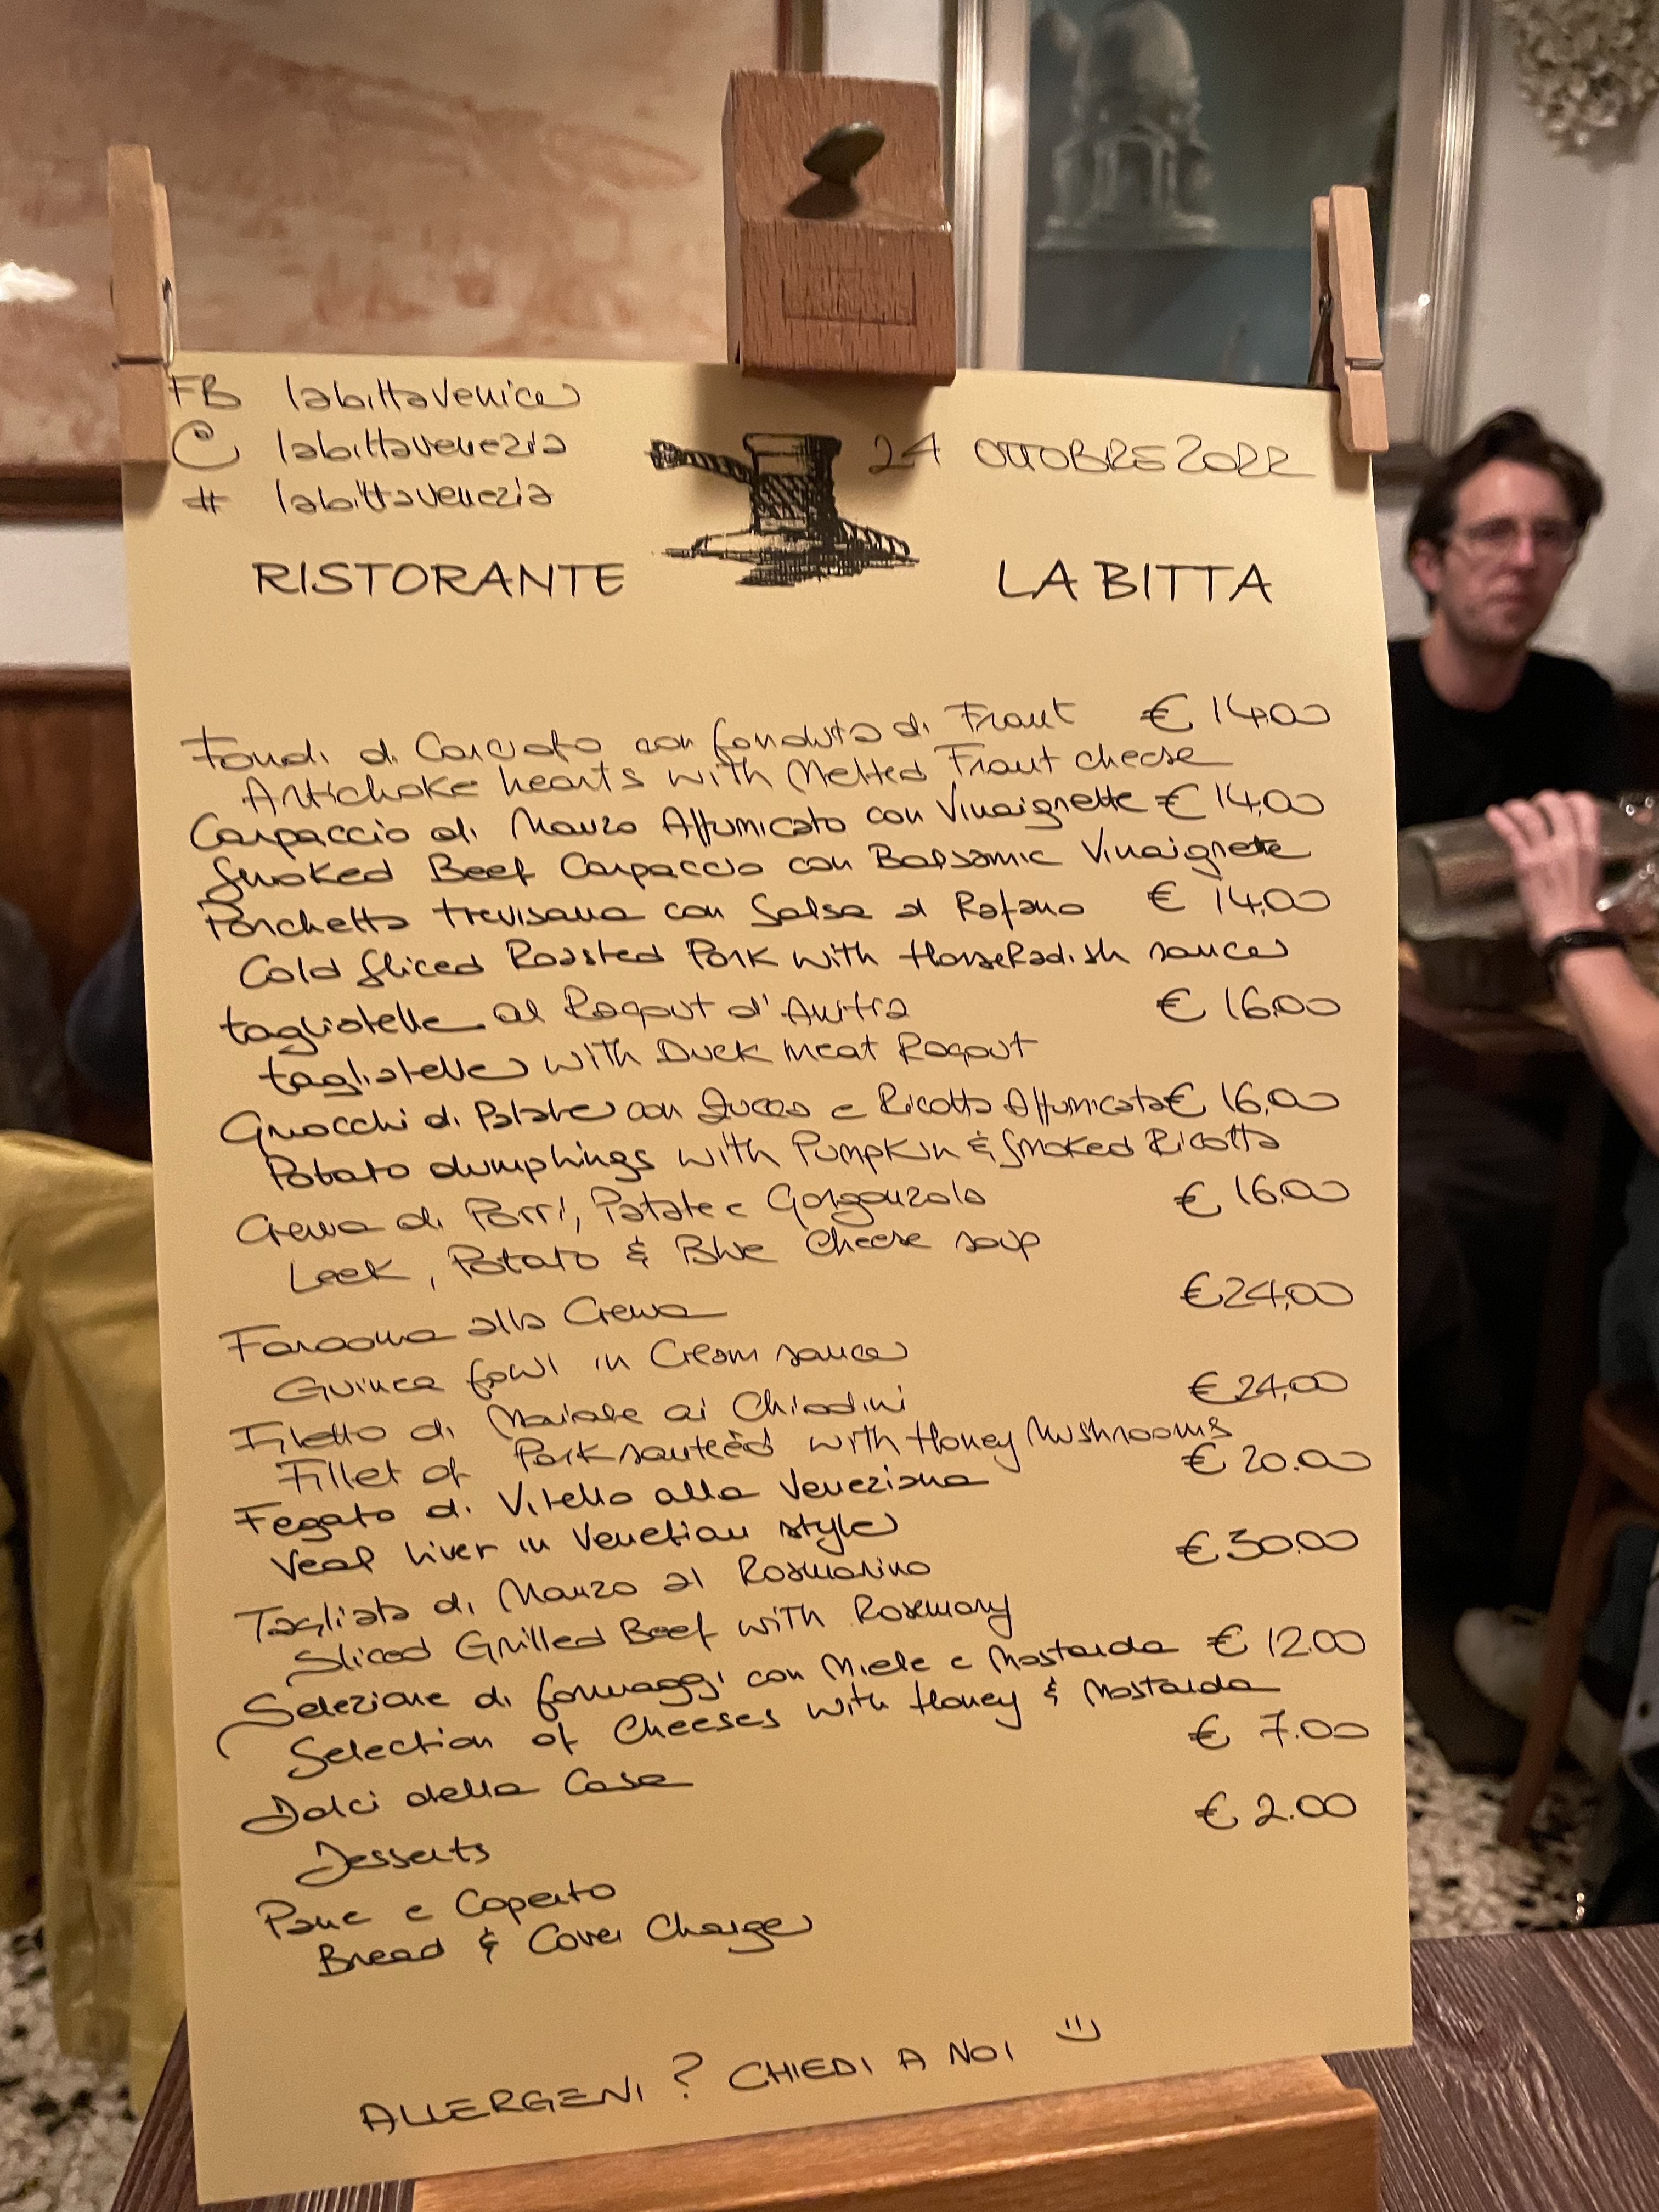 FB labittavenice
@ labittavenezia
# labittavenezia
24 OTTOBRE 2022
RISTORANTE LA BITTA
Fondi di Carciofo con fonduta di Frant € 14,00
Artichoke hearts with Melted Frant cheese
Carpaccio di Manzo Affumicato con Vinaigrette € 14,00
Smoked Beef Carpaccio con Balsamic Vinaigrette
Porchetta trevisana con Salsa al Rafano € 14,00
Cold Sliced Roasted Pork with HorseRadish sauce
tagliatelle al Ragout d'Anitra € 16.00
tagliatelle with Duck meat Ragout
Gnocchi di Patate con Zucca e Ricotta Affumicata € 16,00
Potato dumphings with Pumpkin & Smoked Ricotta
Crema di Porri, Patate e Gorgonzola € 16.00
Leek, Potato & Blue Cheese soup
Faraona alla Crema € 24,00
Guinea fowl in Cream sauce
Filetto di Maiale ai Chiodini € 24,00
Fillet of Pork sauteèd with Honey Mushrooms
Fegato di Vitello alla Veneziana € 20.00
Veal liver in Venetian style
Tagliata di Manzo al Rosmarino € 30.00
Sliced Grilled Beef with Rosemary
Selezione di formaggi con Miele e Mostarda € 12.00
Selection of Cheeses with Honey & Mostarda
Dolci della Casa € 7.00
Desserts
Pane e Coperto € 2.00
Bread & Cover Charge
ALLERGENI ? CHIEDI A NOI